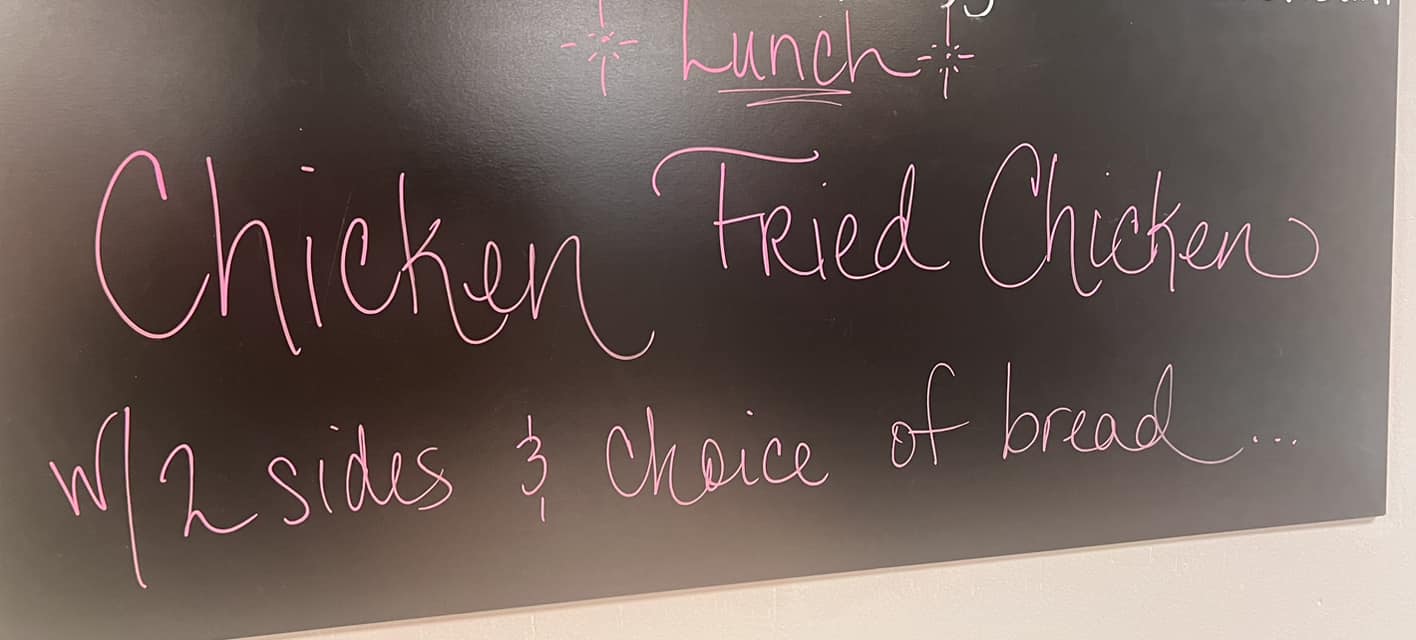 Lunch
Chicken Fried Chicken
w/ 2 sides & choice of bread...